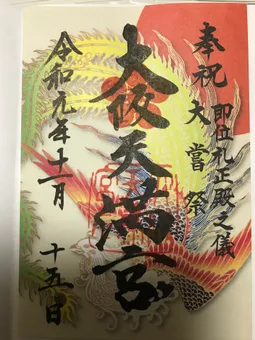 奉祝 即位礼正殿之儀
大嘗祭
大阪天満宮
令和元年十一月 十五日